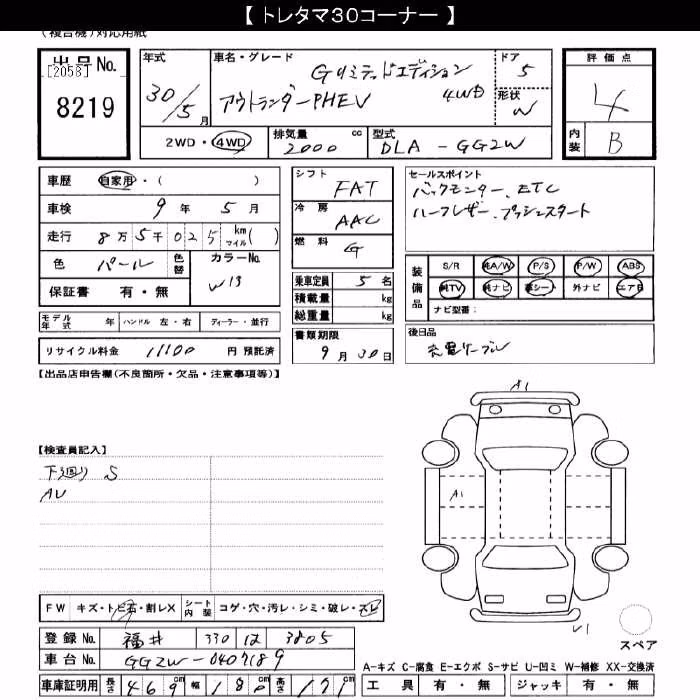 【 トレタマ30コーナー 】
(複合機)対応用紙
出品No.
[2058]
8219
年式 30/5月
車名・グレード Gリミテッドエディション
アウトランダーPHEV 4WD
ドア 5
形状 W
評価点 4
内装 B
2WD・4WD
排気量 2000 cc
型式 DLA-GG2W
車歴 自家用・( )
車検 9年 5月
走行 8万5千025 km マイル( )
色 パール 色替
カラーNo. W13
保証書 有・無
モデル年式 年 ハンドル 左・右 ディーラー・並行
リサイクル料金 11100 円 預託済
シフト FAT
冷房 AAC
燃料 G
乗車定員 5名
積載量 kg
総重量 kg
書類期限 9月30日
セールスポイント
バックモニター、ETC
ハーフレザー、プッシュスタート
装備品
S/R A/W P/S P/W ABS
純TV 純ナビ 革シート 外ナビ エアB
ナビ型番:
後日品
充電ケーブル
【出品店申告欄(不良箇所・欠品・注意事項等)】
【検査員記入】
下廻り S
AU
A1
A1
W1
FW キズ・トビ石・割レX シート内装 コゲ・穴・汚レ・シミ・破レ・スレ
登録No. 福井 330 は 3805
車台No. GG2W-0407189
車庫証明用 長さ 469cm 幅 180cm 高さ 171
スペア
A-キズ C-腐食 E-エクボ S-サビ U-凹ミ W-補修 XX-交換済
工具 有・無 ジャッキ 有・無